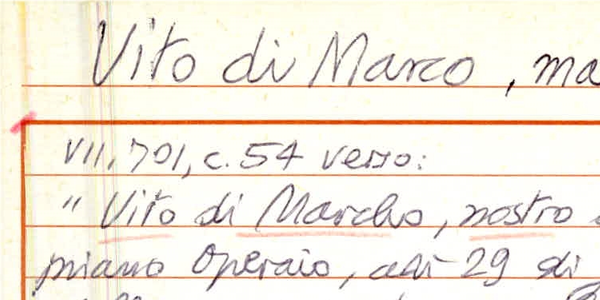 Vito di Marco, ma
VII, 701, c. 54 verso:
" Vito di Marcho, nostro
piano Operaio, adì 29 di